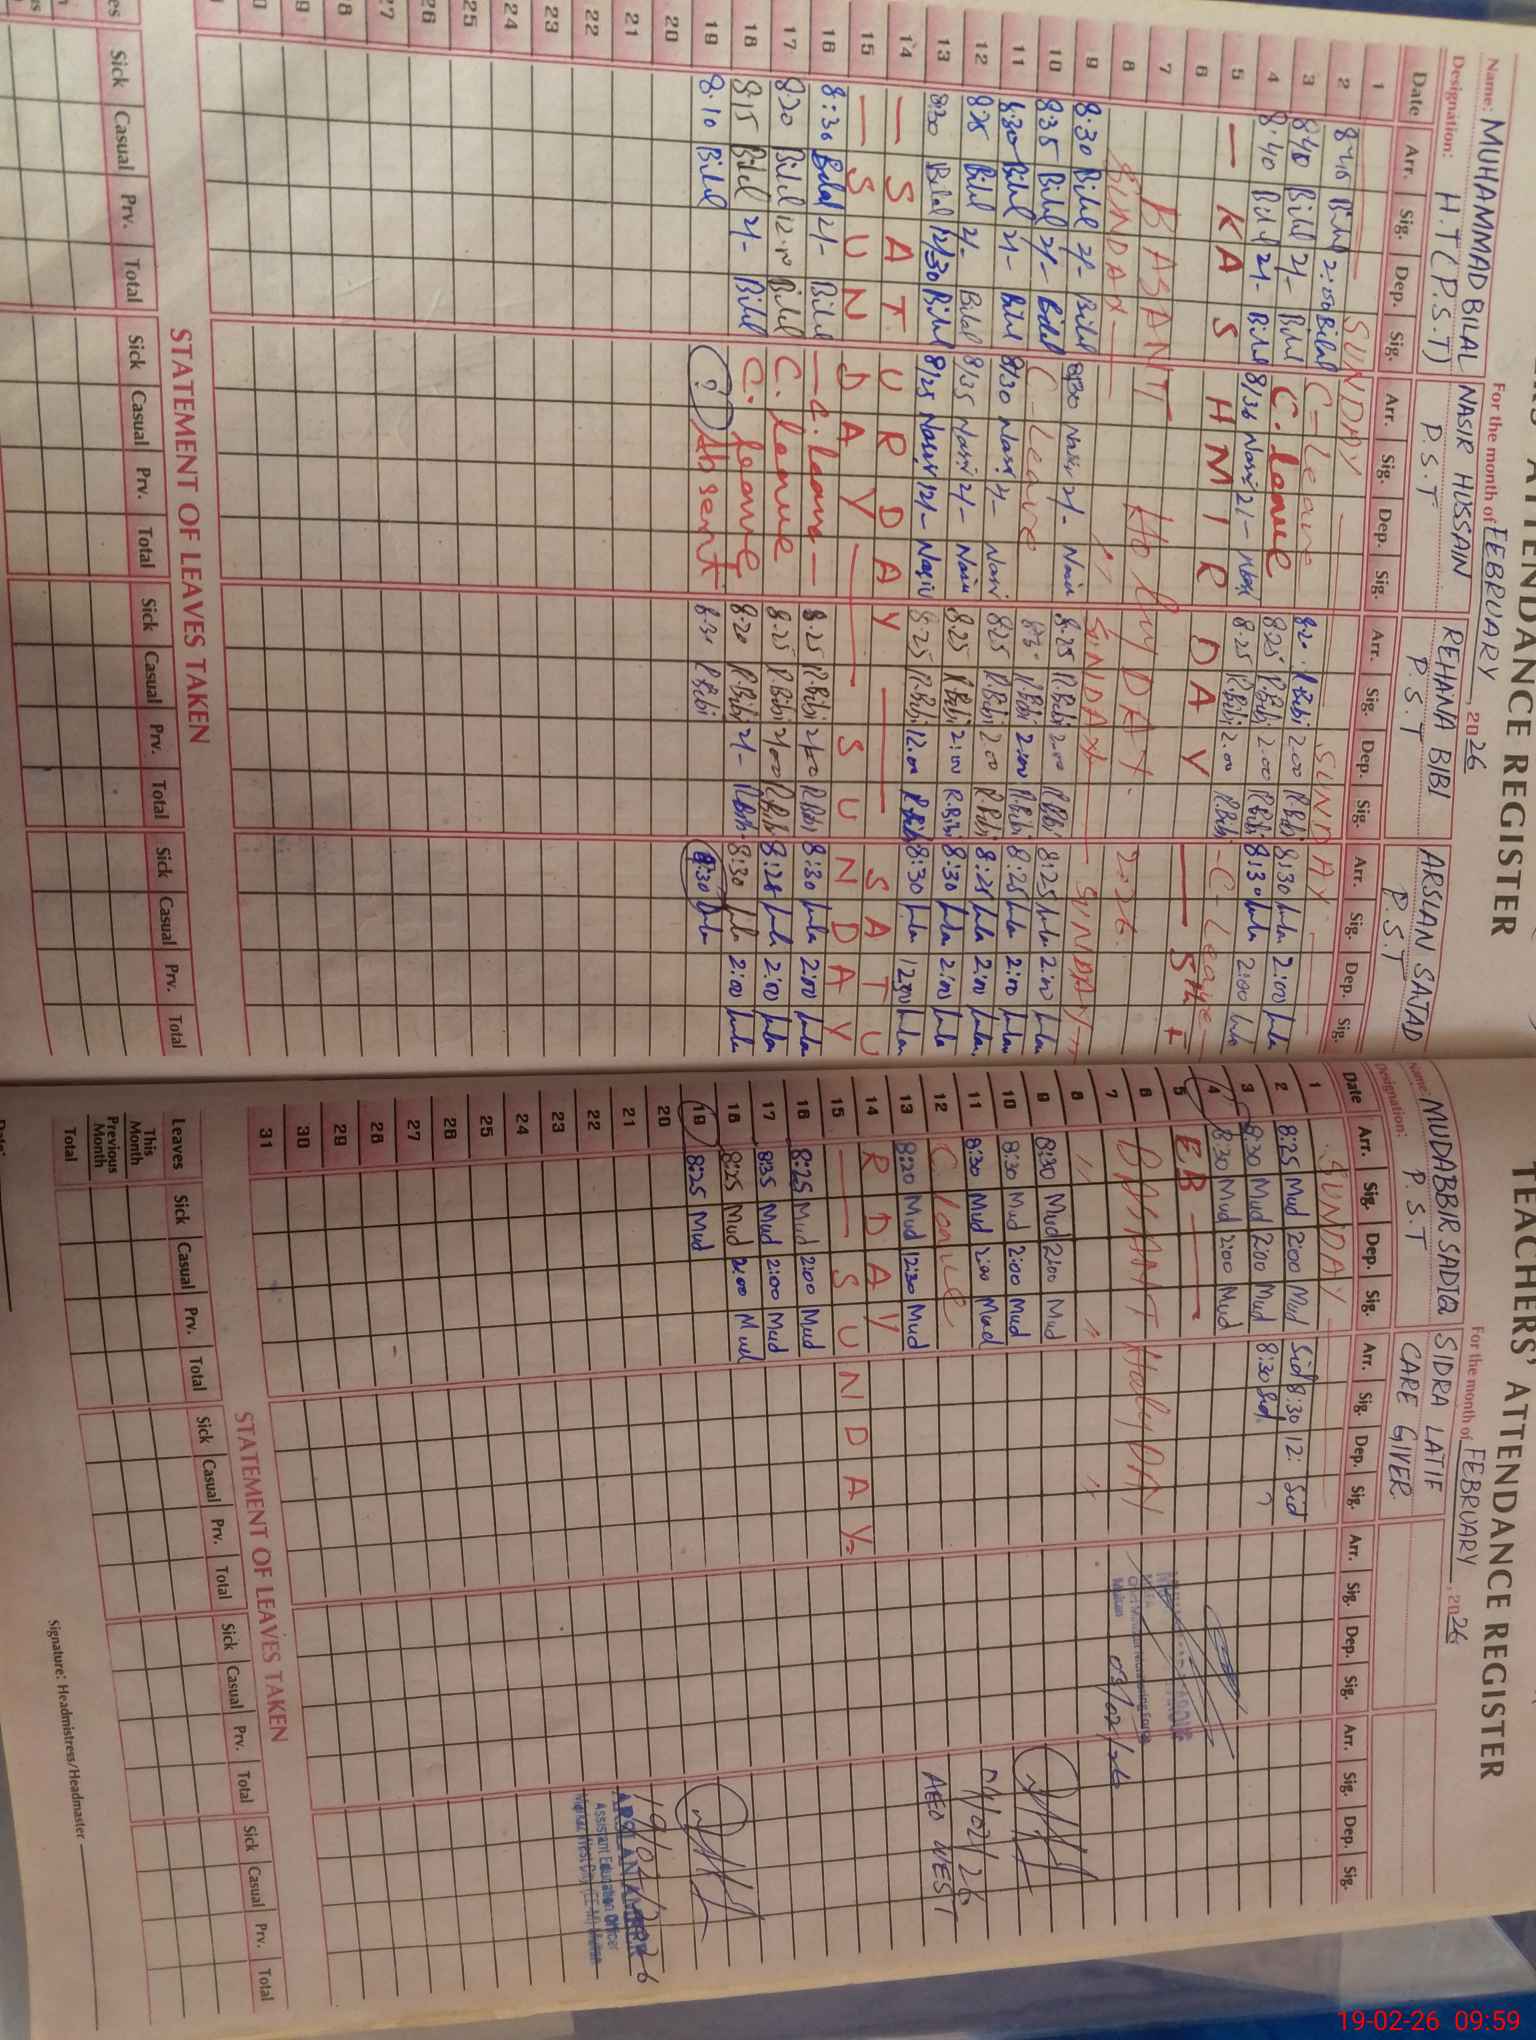 ATTENDANCE REGISTER
For the month of FEBRUARY, 2026
Name: MUHAMMAD BILAL NASIR HUSSAIN REHANA BIBI ARSLAN SAJAD
Designation: H.T (P.S.T) P.S.T P.S.T P.S.T
Date Arr. Sig. Dep. Sig. Arr. Sig. Dep. Sig. Arr. Sig. Dep. Sig. Arr. Sig. Dep. Sig.
1 SUNDAY SUNDAY
2 8:40 Bilal 2:00 Bilal C-Leave 8:20 R.Bibi 2:00 R.Bibi 8:30 2:00
3 8:40 Bilal 2/- Bilal C.leave 8:25 R.Bibi 2:00 R.Bibi 8:30 2:00
4 8:40 Bilal 2/- Bilal 8/36 Nasir 2/- Nasir 8:25 R.Bibi 2:00 R.Bibi C-Leave
5 — KASHMIR DAY — 5th F
6 BASANT Holy DAY. 2026.
7
8 SUNDAY — " SUNDAY — SUNDAY —"
9 8:30 Bilal 2/- Bilal 8:30 Nasir 2/- Nasir 8:25 R.Bibi 2:00 R.Bibi 8:25 2:00
10 8:35 Bilal 2/- Bilal C-Leave 8:30 R.Bibi 2:00 R.Bibi 8:25 2:00
11 8:30 Bilal 2/- Bilal 8/30 Nasir 2/- Nasir 8:25 R.Bibi 2:00 R.Bibi 8:25 2:00
12 8:25 Bilal 2/- Bilal 8/35 Nasir 2/- Nasir 8:25 R.Bibi 2:00 R.Bibi 8:30 2:00
13 8:30 Bilal 12/30 Bilal 8/25 Nasir 12/- Nasir 8:25 R.Bibi 12:00 R.Bibi 8:30 12:00
14 — SATURDAY — SATU
15 — SUNDAY — SUNDAY
16 8:30 Bilal 2/- Bilal — C.leave — 8:25 R.Bibi 2/00 R.Bibi 8:30 2:00
17 8:20 Bilal 12:10 Bilal C.leave 8:25 R.Bibi 2/00 R.Bibi 8:25 2:00
18 8:15 Bilal 2/- Bilal C.leave 8:20 R.Bibi 2/- R.Bibi 8:30 2:00
19 8:10 Bilal (?) Absent 8:30 R.Bibi 8:30
20
21
22
23
24
25
26
27
28
29
30
STATEMENT OF LEAVES TAKEN
Sick Casual Prv. Total Sick Casual Prv. Total Sick Casual Prv. Total Sick Casual Prv. Total
TEACHERS' ATTENDANCE REGISTER
For the month of FEBRUARY, 2026
Name: MUDABBIR SADIQ SIDRA LATIF
Designation: P.S.T CARE GIVER
Date Arr. Sig. Dep. Sig. Arr. Sig. Dep. Sig. Arr. Sig. Dep. Sig. Arr. Sig. Dep. Sig.
1 SUNDAY
2 8:25 Mud 2:00 Mud Sid 8:30 12: Sid
3 8:30 Mud 2:00 Mud 8:30 Sid ?
4 8:30 Mud 2:00 Mud
5 EB —
6 BASANT HolyDAY
7 03/02/26
8 " " "
9 8:30 Mud 2:00 Mud
10 8:30 Mud 2:00 Mud
11 8:30 Mud 2:00 Mud
12 C leave
13 8:20 Mud 12:30 Mud
14 RDAY
15 — SUNDAY
16 8:25 Mud 2:00 Mud
17 8:35 Mud 2:00 Mud
18 8:25 Mud 2:00 Mud
19 8:25 Mud
20
21
22
23
24
25
26
27
28
29
30
31
AEO WEST
ARSLAN
Assistant Education Officer
STATEMENT OF LEAVES TAKEN
Leaves Sick Casual Prv. Total Sick Casual Prv. Total Sick Casual Prv. Total Sick Casual Prv. Total
This Month
Previous Month
Total
Signature: Headmistress/Headmaster
19-02-26 09:59